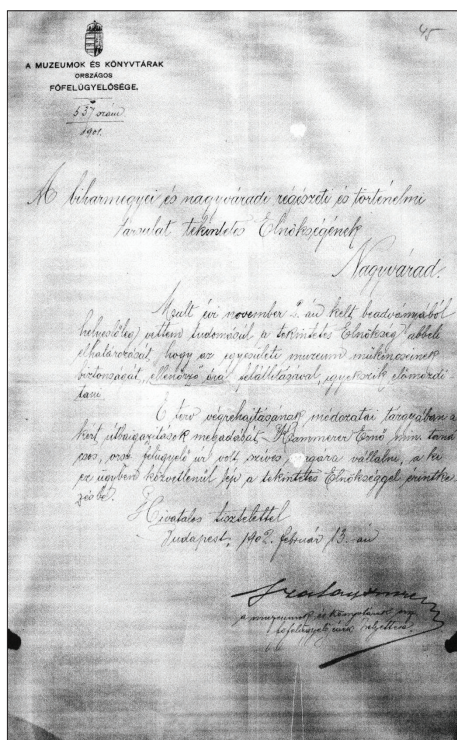 45
A MUZEUMOK ÉS KÖNYVTÁRAK
ORSZÁGOS
FŐFELÜGYELŐSÉGE.
537 szám
1901.
A biharmegyei és nagyváradi régészeti és történelmi
társulat tekintetes Elnökségének
Nagyvárad.
Mult évi november 2.-án kelt beadványából
helyeslőleg vettem tudomásúl a tekintetes Elnökség abbeli
elhatározását, hogy az egyesületi muzeum műkincseinek
biztonságát ellenőrző óra felállításával igyekszik előmozdí
tani.
E terv végrehajtásának módozatai tárgyában a
kért útbaigazítások megadását Kammerer Ernő min. taná
csos, orsz. felügyelő úr volt szíves magára vállalni, a ki
ez ügyben közvetlenül lép a tekintetes Elnökséggel érintke
zésbe.
Hivatalos tisztelettel
Budapest, 1902. február 13.-án
Szalay Imre
a muzeumok és könyvtárak orsz.
főfelügyelőjének helyettese.